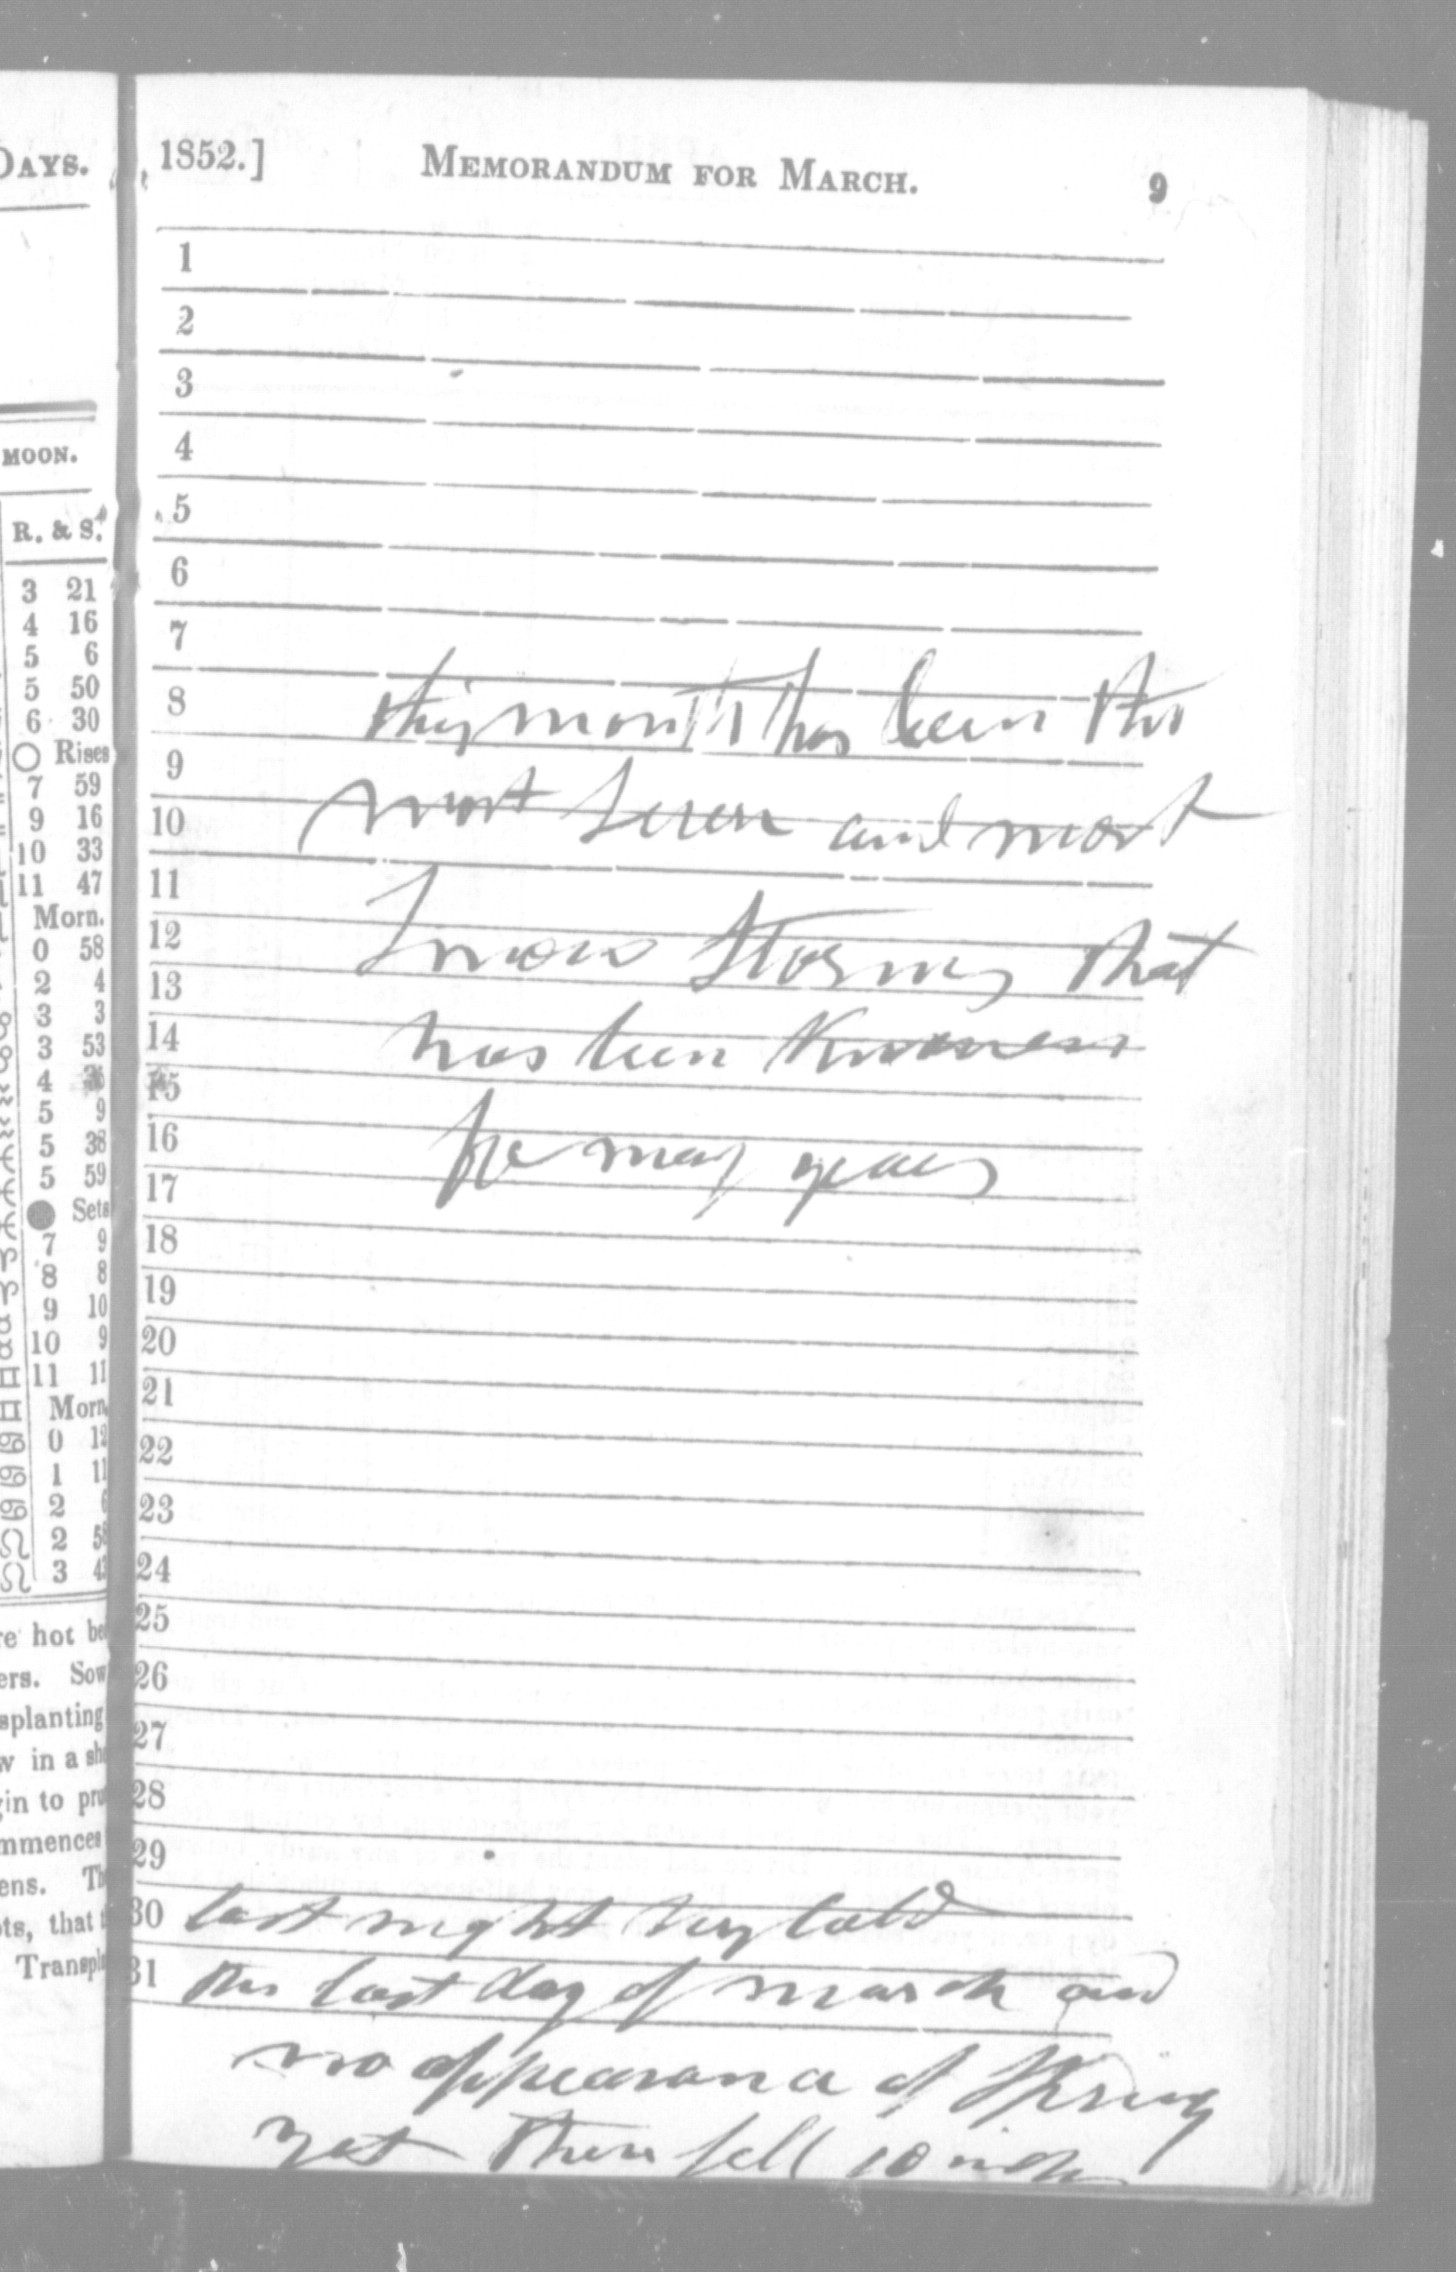 DAYS.
MOON.
R. & S.
3 21
4 16
5 6
5 50
6 30
Rises
7 59
9 16
10 33
11 47
Morn.
0 58
2 4
3 3
3 53
4
5 9
5 38
5 59
Sets
7 9
8 8
9 10
10 9
11 11
Morn
0 12
1 11
2 6
2 5
3 4
re hot be
ers. Sow
splanting
w in a sh
gin to pru
mmences
ens. Th
ots, that t
Transpla
1852.] MEMORANDUM FOR MARCH. 9
1
2
3
4
5
6
7
8 this month has been the
9
10 most severe and most
11
12 Snow Storms that
13
14 has been
15
16 for many years
17
18
19
20
21
22
23
24
25
26
27
28
29
30 last night very cold
31 this last day of march and
no appearance of Spring
yet there fell 10 inch